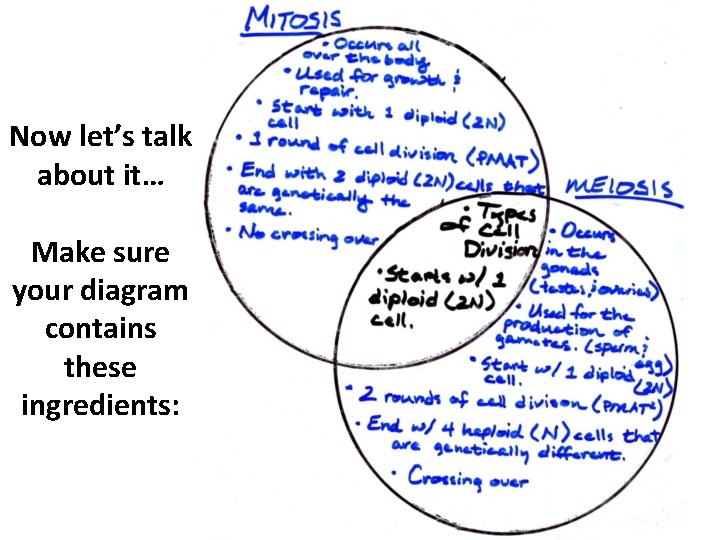 Now let's talk
about it...
Make sure
your diagram
contains
these
ingredients:
MITOSIS
• Occurs all
over the body
• Used for growth &
repair.
• Start with 1 diploid (2N)
cell
• 1 round of cell division (PMAT)
• End with 2 diploid (2N) cells that
are genetically the
same.
• No crossing over
• Types
of cell
Division
• Starts w/ 1
diploid (2N)
cell.
MEIOSIS
• Occurs
in the
gonads
(testes & ovaries)
• Used for the
production of
gametes. (sperm &
egg)
• Start w/ 1 diploid
(2N)
cell.
• 2 rounds of cell divison (PMAT²)
• End w/ 4 haploid (N) cells that
are genetically different.
• Crossing over